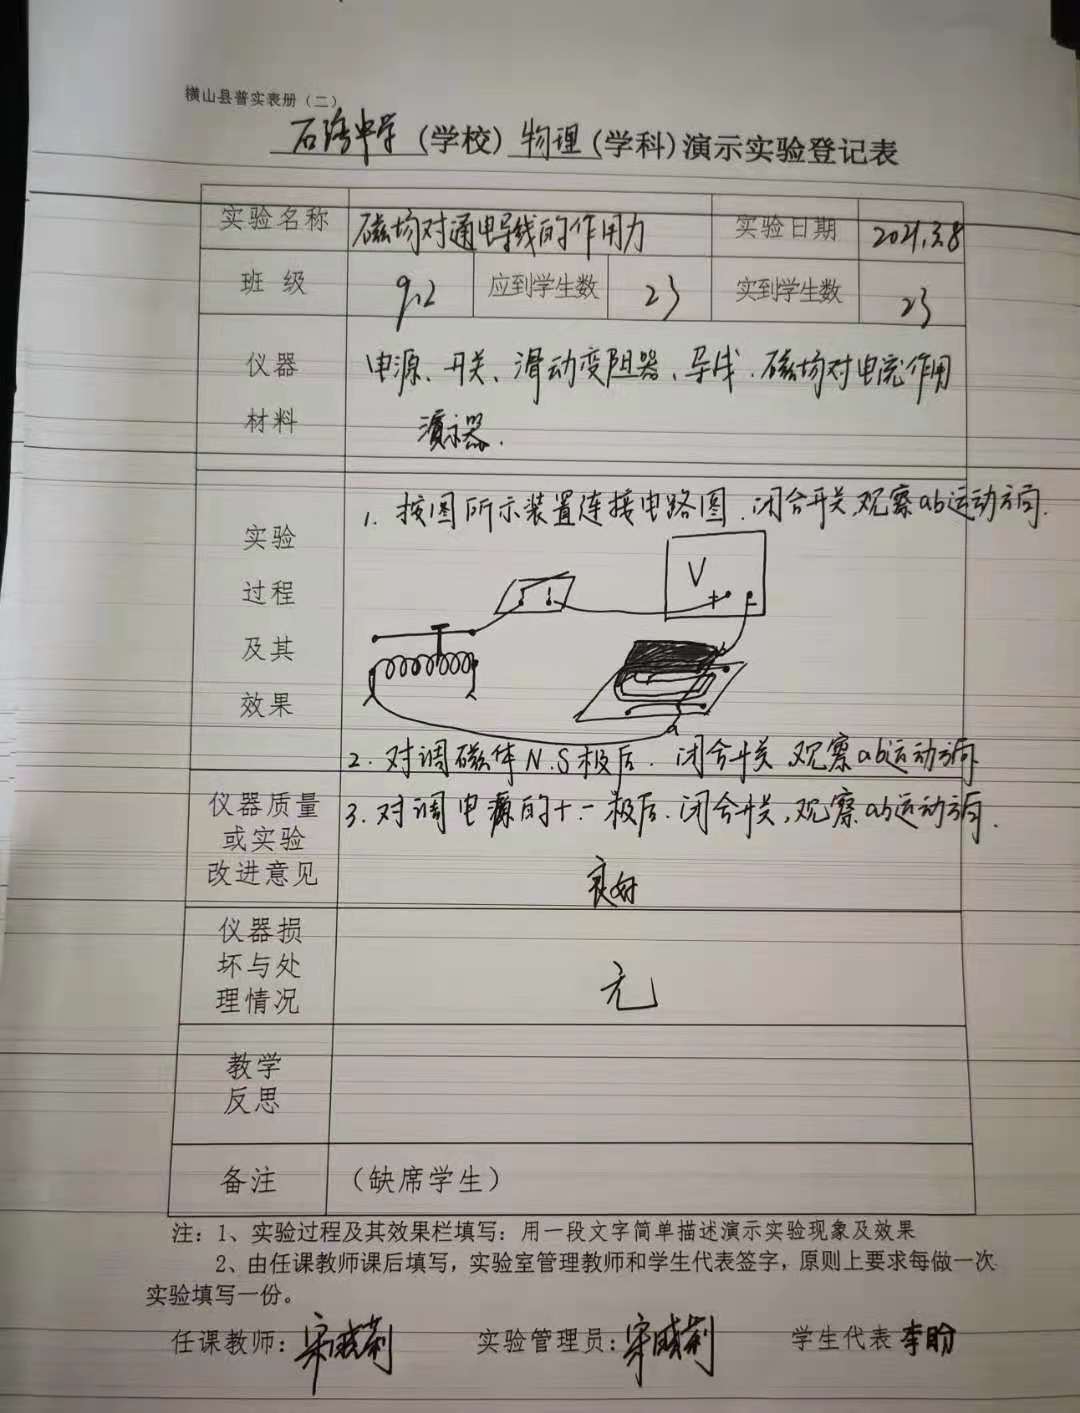 横山县普实表册（二）
石湾中学（学校）物理（学科）演示实验登记表
实验名称 磁场对通电导线的作用力 实验日期 2021.3.8
班 级 9.2 应到学生数 23 实到学生数 23
仪器 电源、开关、滑动变阻器、导线、磁场对电流作用
材料 演示器.
1. 按图所示装置连接电路图.闭合开关,观察ab运动方向.
实验
过程
及其
效果
V
+ -
a
2. 对调磁体N.S极后. 闭合开关,观察ab运动方向
3. 对调电源的+.-极后.闭合开关,观察ab运动方向.
仪器质量
或实验
改进意见
良好
仪器损
坏与处
理情况
无
教学
反思
备注 （缺席学生）
注：1、实验过程及其效果栏填写：用一段文字简单描述演示实验现象及效果
2、由任课教师课后填写，实验室管理教师和学生代表签字，原则上要求每做一次
实验填写一份。
任课教师：宋 实验管理员：宋 学生代表 李盼